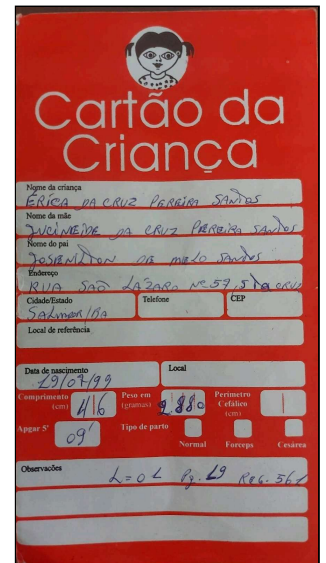 Cartão da
Criança
Nome da criança
ERICA DA CRUZ PEREIRA SANTOS
Nome da mãe
LUCINEIDE DA CRUZ PEREIRA SANTOS
Nome do pai
JOSENILTON DE MELO SANTOS
Endereço
RUA SAO LÁZARO Nº 59, Sta CRUZ
Cidade/Estado Telefone CEP
SALVADOR/BA
Local de referência
Data de nascimento Local
19/07/99
Comprimento (cm) 46 Peso em (gramas) 2.880 Perímetro Cefálico (cm)
Apgar 5' 09' Tipo de parto
Normal Forceps Cesárea
Observacões
L=01 Pg. 19 Reg. 561